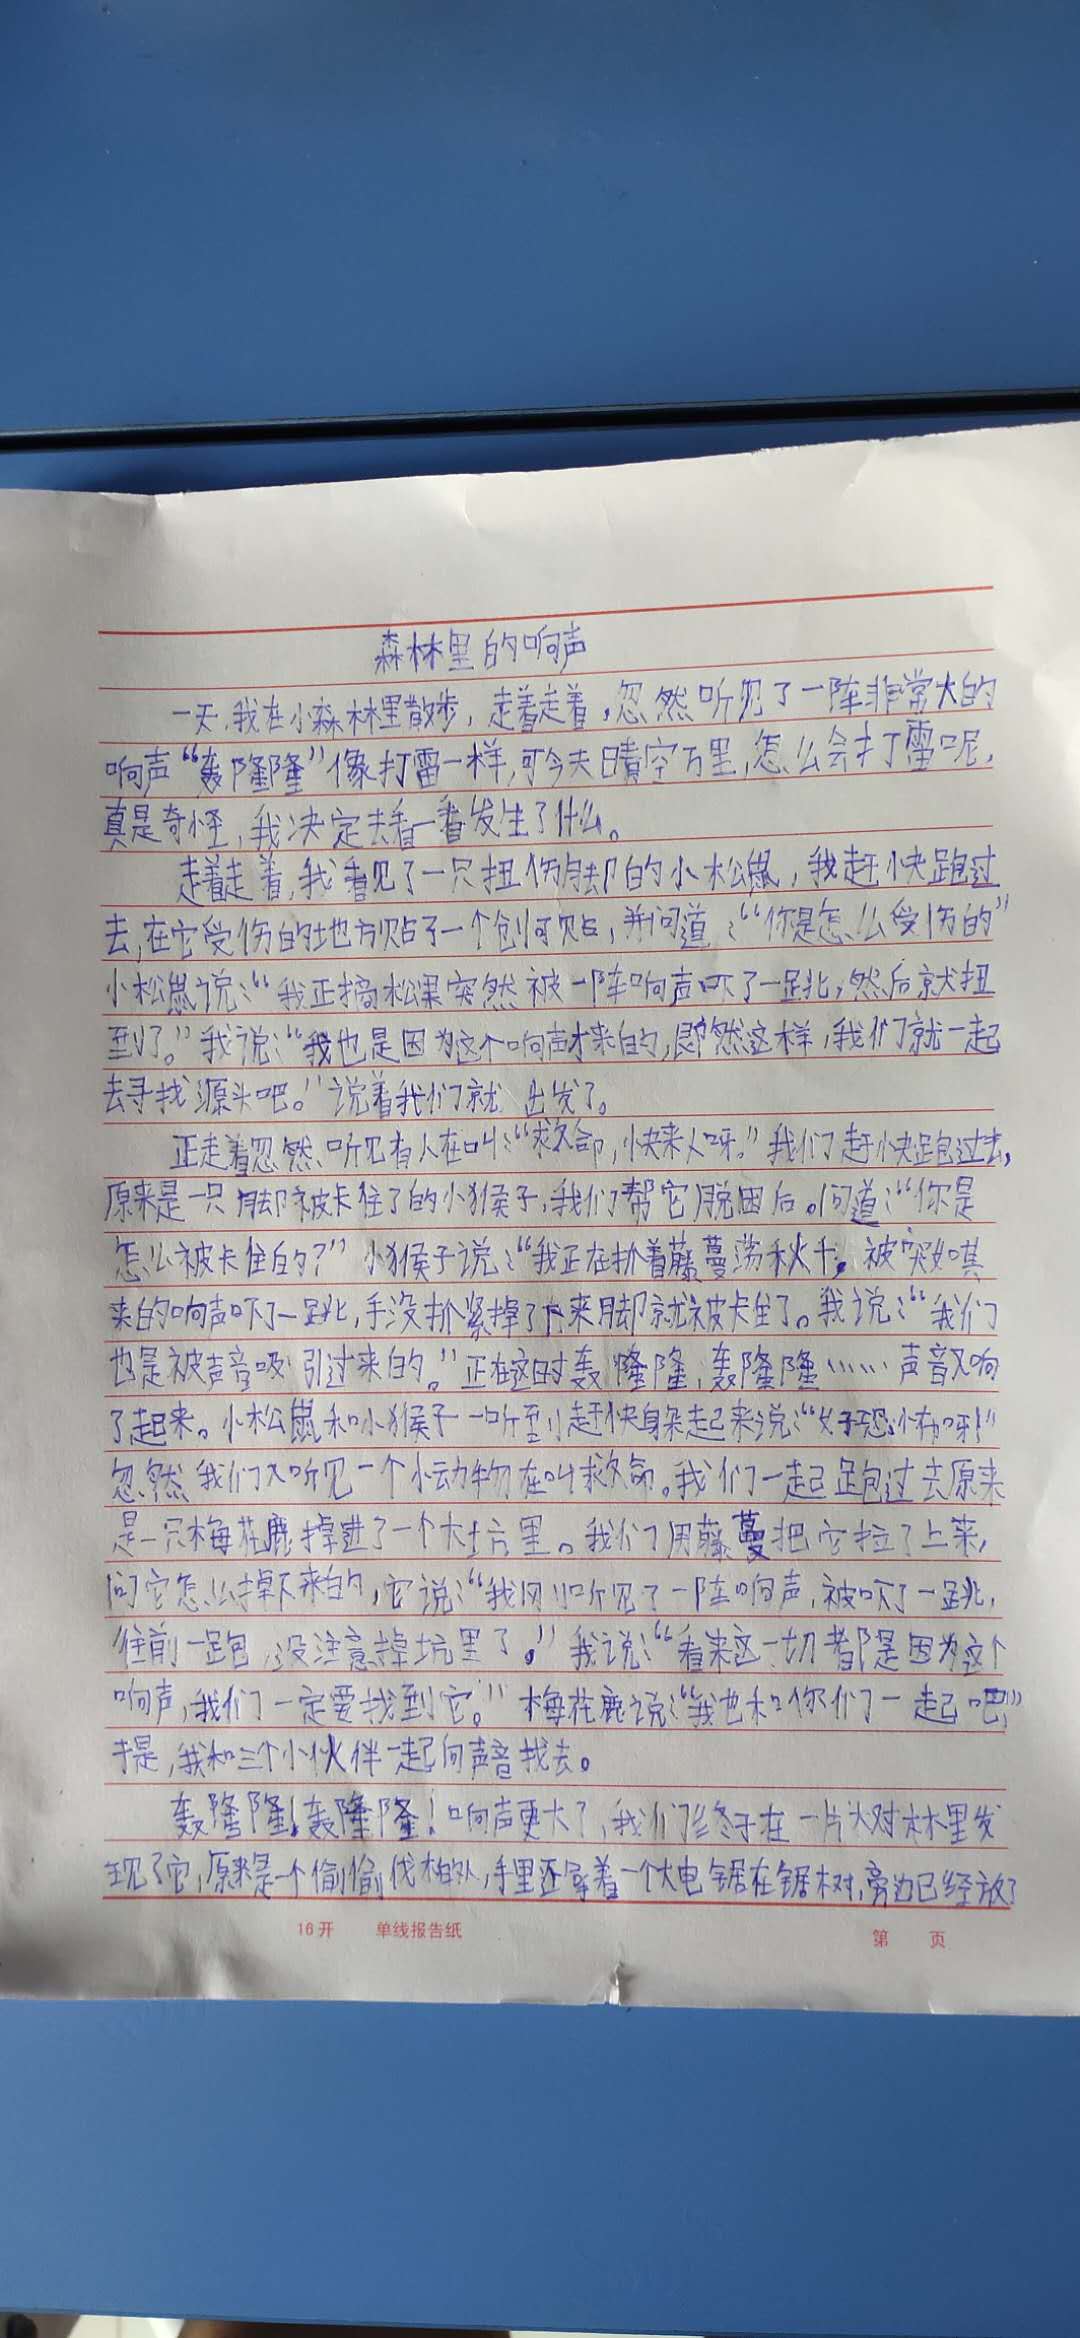 森林里的响声
一天,我在小森林里散步,走着走着,忽然听见了一阵非常大的
响声“轰隆隆”像打雷一样,可今天晴空万里,怎么会打雷呢,
真是奇怪,我决定去看一看发生了什么。
走着走着,我看见了一只扭伤脚的小松鼠,我赶快跑过
去,在它受伤的地方贴了一个创可贴,并问道:“你是怎么受伤的”
小松鼠说:“我正摘松果突然被一阵响声吓了一跳,然后就扭
到了。”我说:“我也是因为这个响声才来的,即然这样,我们就一起
去寻找源头吧。”说着我们就出发了。
正走着忽然听见有人在叫:“救命,快来人呀。”我们赶快跑过去,
原来是一只脚被卡住了的小猴子,我们帮它脱困后。问道:“你是
怎么被卡住的?”小猴子说:“我正在扒着藤蔓荡秋千,被突如其
来的响声吓了一跳,手没扒紧掉了下来脚就被卡住了。我说:“我们
也是被声音吸引过来的。”正在这时轰隆隆,轰隆隆……声音又响
了起来。小松鼠和小猴子一听到赶快躲起来说:“好恐怖呀!”
忽然我们又听见一个小动物在叫救命。我们一起跑过去原来
是一只梅花鹿掉进了一个大坑里。我们用藤蔓把它拉了上来,
问它怎么掉下来的,它说:“我刚刚听见了一阵响声,被吓了一跳,
往前一跑,没注意掉坑里了。”我说:“看来这一切都是因为这个
响声,我们一定要找到它。”梅花鹿说:“我也和你们一起吧,”
于是,我和三个小伙伴一起向声音找去。
轰隆隆!轰隆隆!响声更大了,我们终于在一片大树林里发
现了它,原来是一个偷偷伐树的人,手里还拿着一个大电锯在锯树,旁边已经放了
16开 单线报告纸
第 页